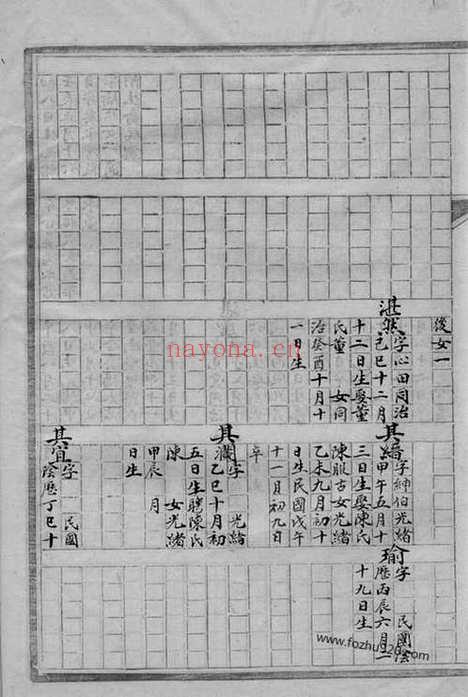 後女一
湛然字心田同治
己巳十二月
十二日生娶董
氏董 女同
治癸酉十月十
一日生
其縉字紳伯光緒
甲午五月十
三日生娶陳氏
陳服古女光緒
乙未九月初十
日生民國戊午
十一月初九日
卒
其瀾字 光緒
乙巳十月初
五日生聘陳氏
陳 女光緒
甲辰 月
日生
其宜字 民國
陰歷丁巳十
瑜字 民國陰
歷丙辰六月二
十九日生
nayona.cn
www.fozhu920.com